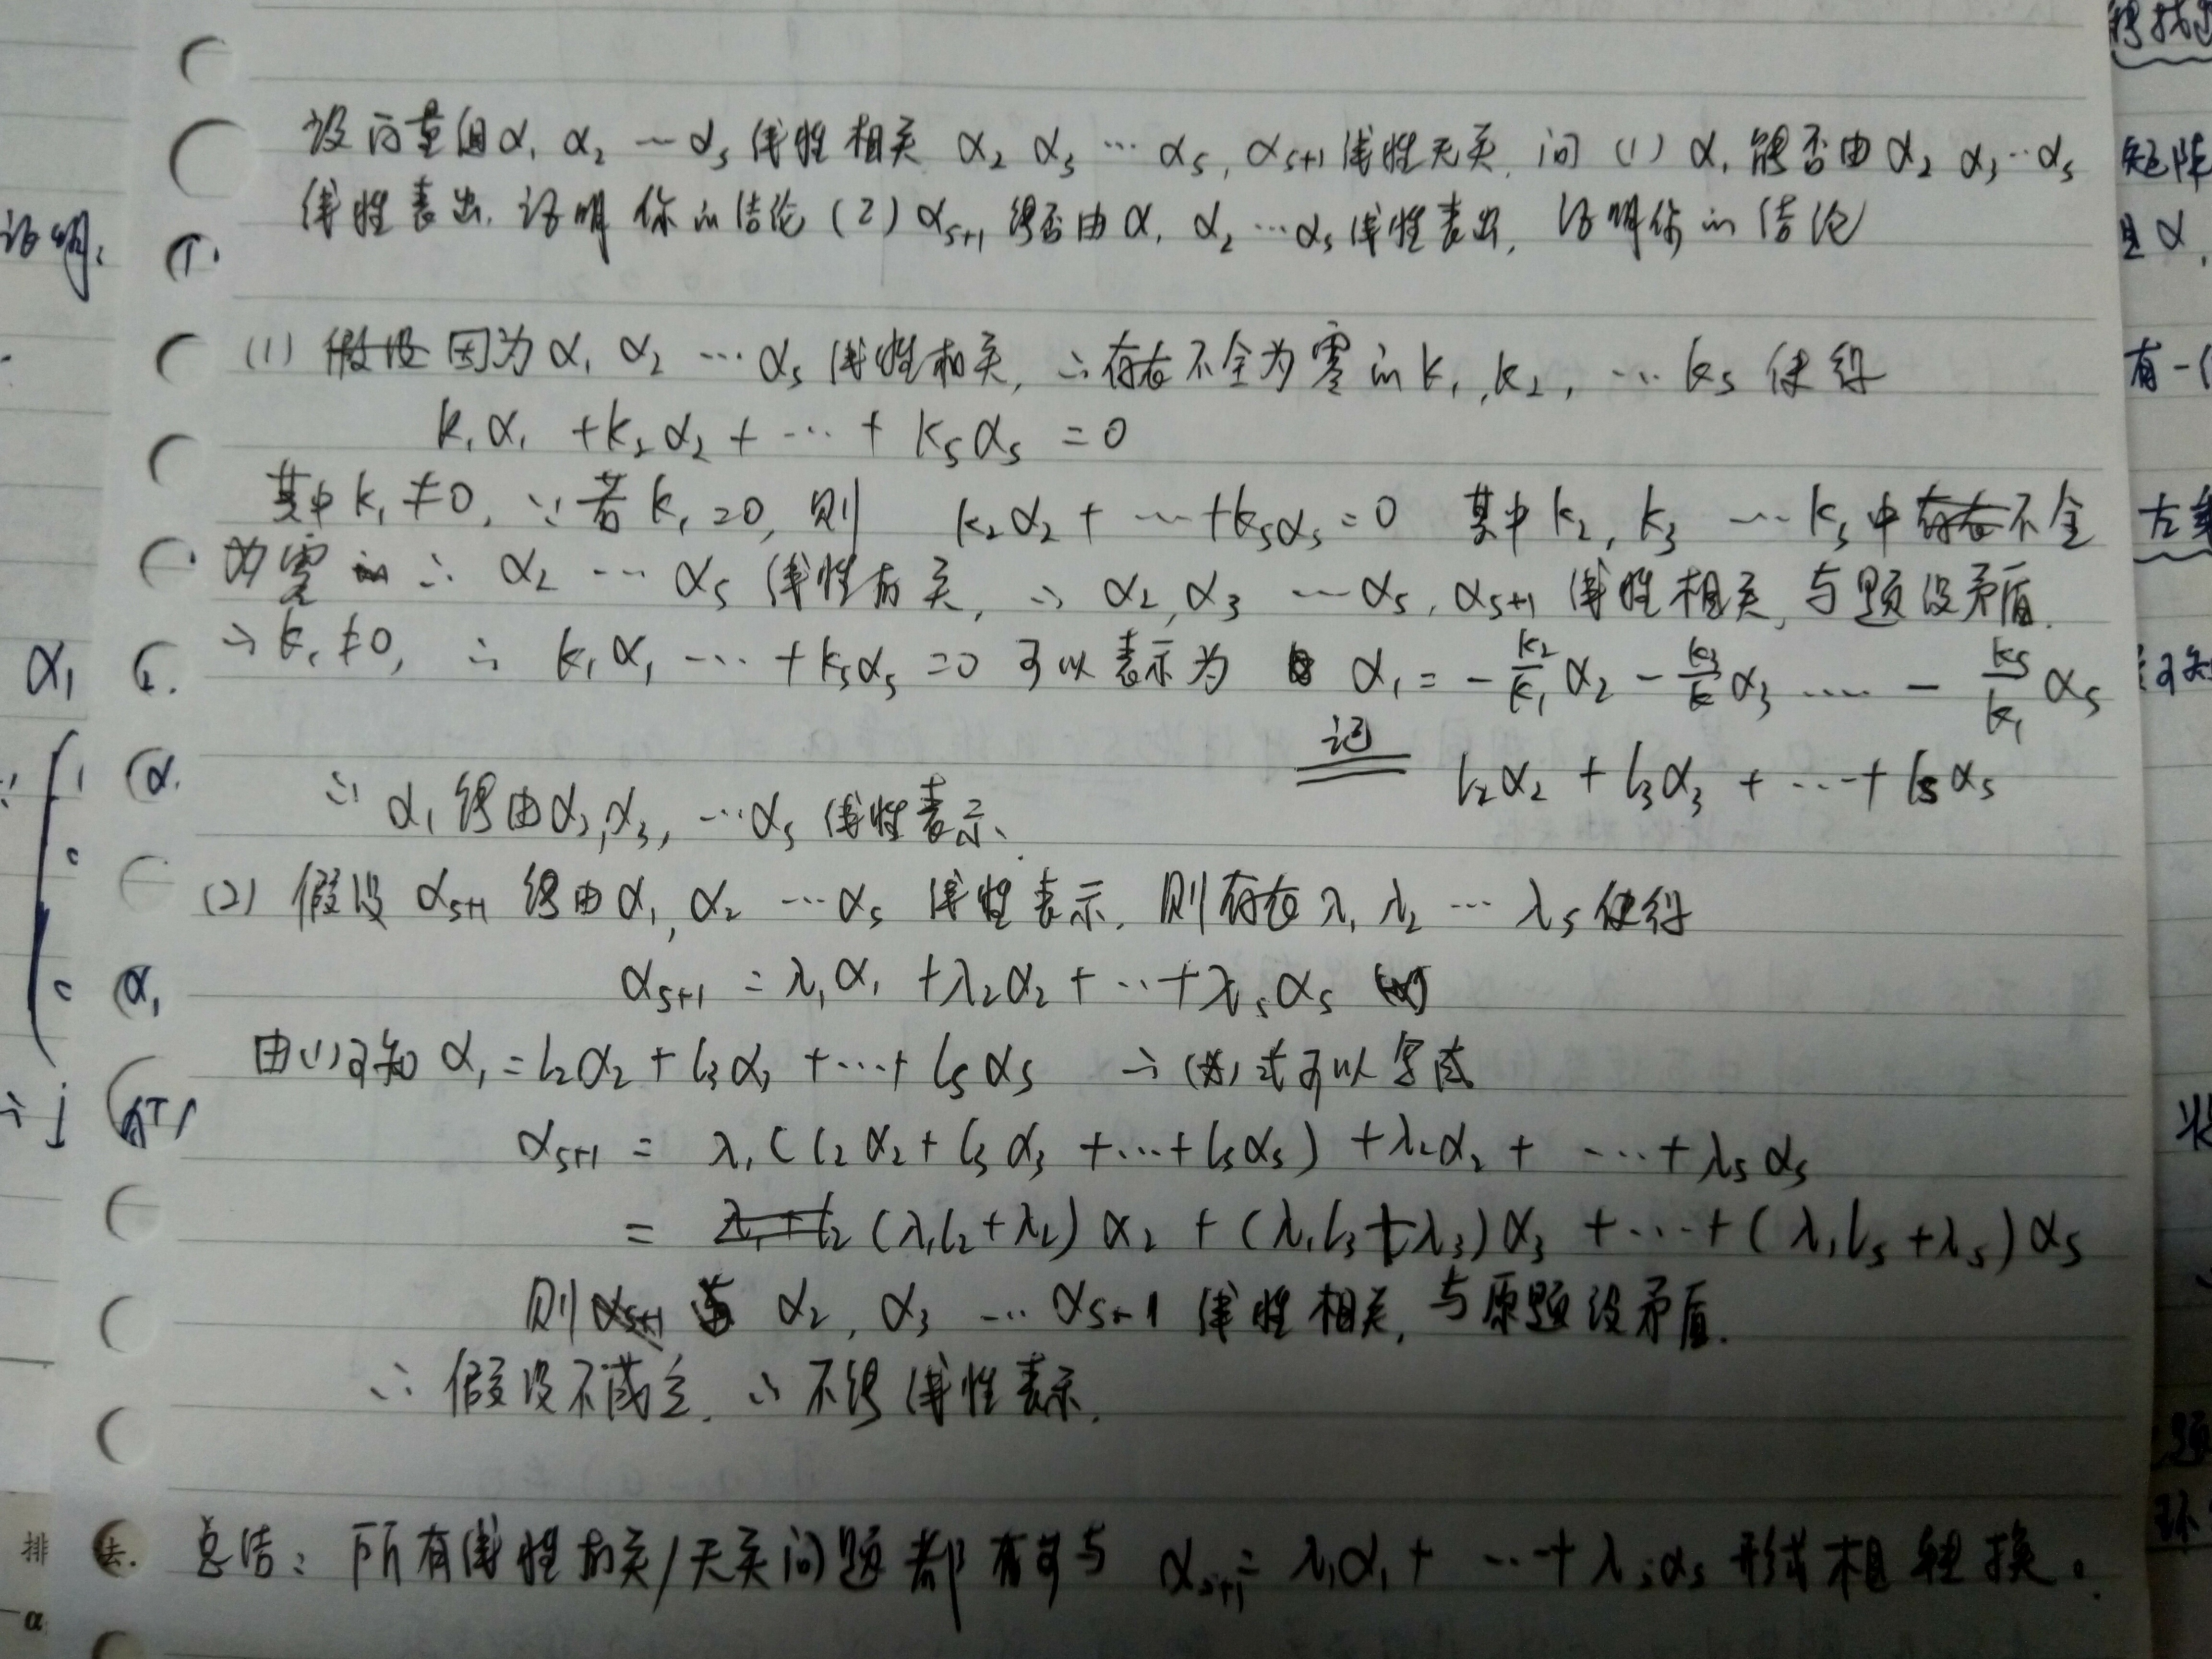 设向量组α₁ α₂ … αₛ 线性相关 α₂ α₃ … αₛ, αₛ₊₁ 线性无关, 问 (1) α₁ 能否由 α₂ α₃ … αₛ
线性表出, 证明你的结论 (2) αₛ₊₁ 能否由 α₁ α₂ … αₛ 线性表出, 证明你的结论
(1) 假设 因为 α₁ α₂ … αₛ 线性相关, ∴ 存在不全为零的 k₁, k₂, … kₛ 使得
k₁α₁ + k₂α₂ + … + kₛαₛ = 0
其中 k₁ ≠ 0, ∵ 若 k₁ = 0, 则 k₂α₂ + … + kₛαₛ = 0 其中 k₂, k₃ … kₛ 中存在不全
为零的 ∴ α₂ … αₛ 线性相关, ∴ α₂, α₃ … αₛ, αₛ₊₁ 线性相关, 与题设矛盾.
∴ k₁ ≠ 0, ∴ k₁α₁ … + kₛαₛ = 0 可以表示为 α₁ = - k₂/k₁ α₂ - k₃/k α₃ …… - kₛ/k₁ αₛ
记 l₂α₂ + l₃α₃ + … + lₛαₛ
∴ α₁ 能由 α₂, α₃, … αₛ 线性表示.
(2) 假设 αₛ₊₁ 能由 α₁, α₂ … αₛ 线性表示, 则存在 λ₁ λ₂ … λₛ 使得
αₛ₊₁ = λ₁α₁ + λ₂α₂ + … + λₛαₛ
由(1)可知 α₁ = l₂α₂ + l₃α₃ + … + lₛαₛ ∴ (*) 式可以写成
αₛ₊₁ = λ₁(l₂α₂ + l₃α₃ + … + lₛαₛ) + λ₂α₂ + … + λₛαₛ
= (λ₁l₂+λ₂)α₂ + (λ₁l₃+λ₃)α₃ + … + (λ₁lₛ+λₛ)αₛ
则 α₂, α₃ … αₛ₊₁ 线性相关, 与原题设矛盾.
∴ 假设不成立. ∴ 不能线性表示.
总结: 所有线性相关/无关问题都 可与 αₛ₊₁ = λ₁α₁ + … + λₛαₛ 形式相转换。
证明:
α₁
排
α
矩阵
且 α
有一
题